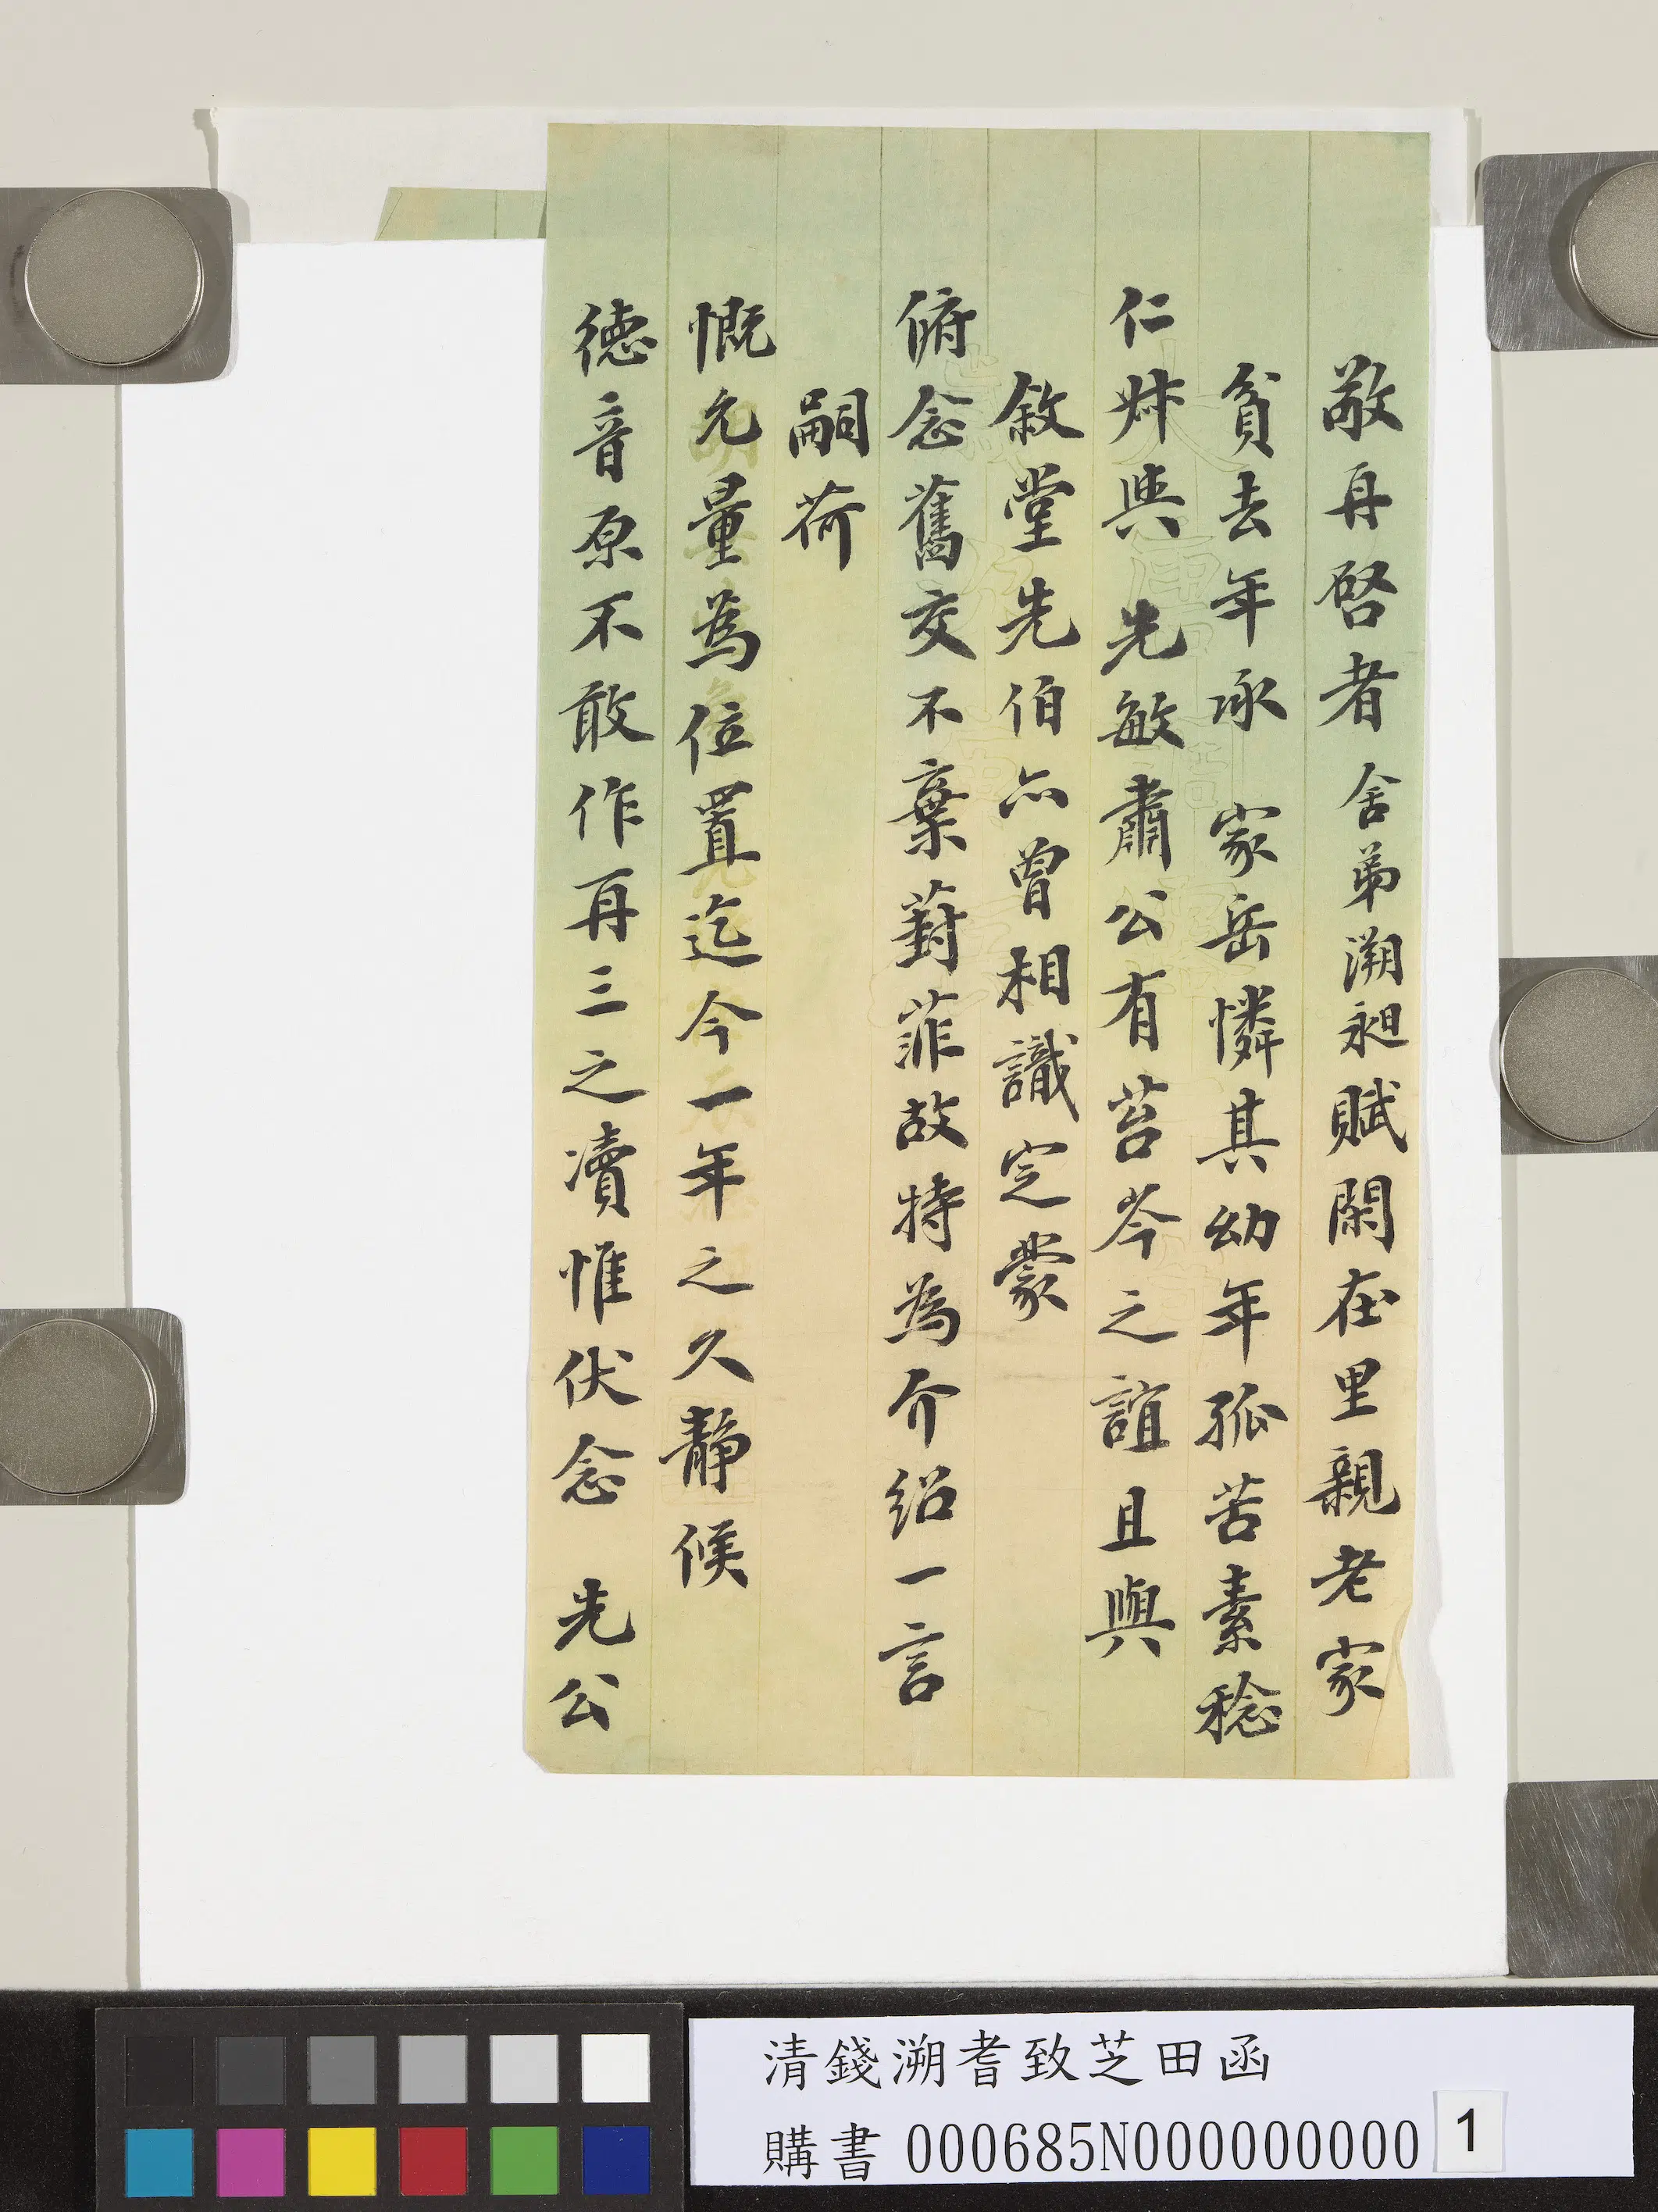 敬再啓者舍弟溯昶賦閑在里親老家
貧去年承 家岳憐其幼年孤苦素稔
仁㚬與 先敏肅公有苔岑之誼且與
敘堂先伯亦曾相識定蒙
俯念舊交不棄葑菲故特為介紹一言
嗣荷
慨允量為位置迄今一年之久靜候
德音原不敢作再三之瀆惟伏念 先公
清錢溯耆致芝田函
購書 000685N000000000 1